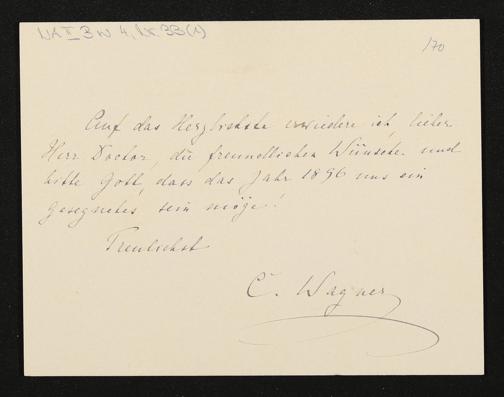 NA II 3 W 4, Nr. 33(1)
170
Auf das Herzlichste erwiedere ich, lieber
Herr Doctor, die freundlichen Wünsche und
bitte Gott, dass das Jahr 1896 uns ein
gesegnetes sein möge!
Treulichst
C. Wagner